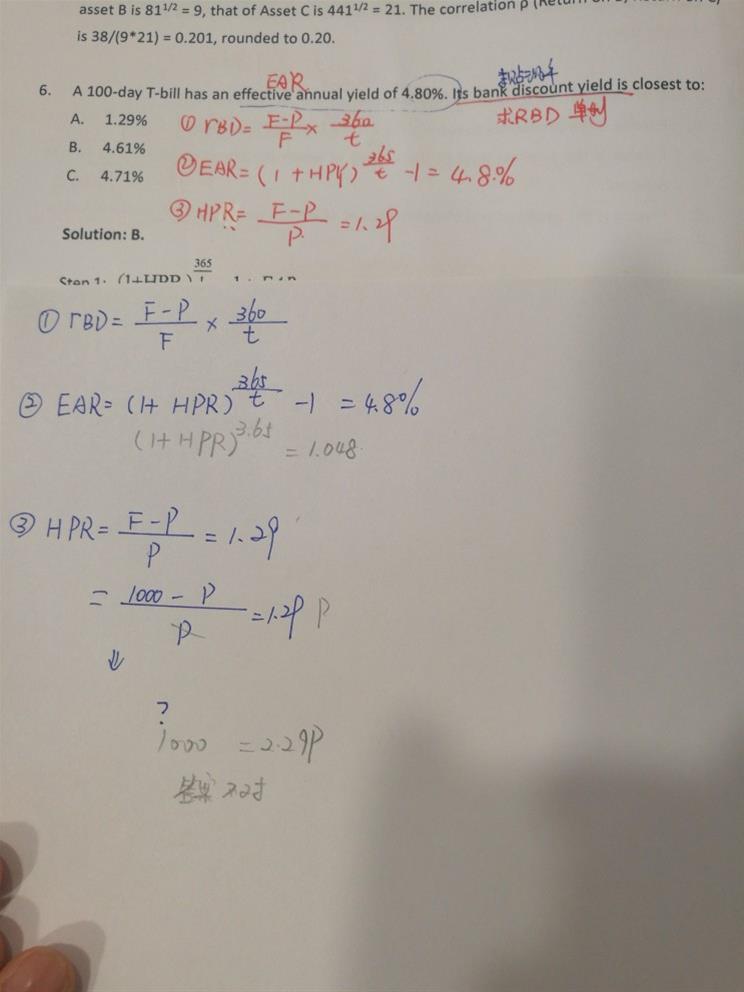 asset B is 81^1/2 = 9, that of Asset C is 441^1/2 = 21. The correlation ρ (Return on B, Return on C)
is 38/(9*21) = 0.201, rounded to 0.20.
EAR
6. A 100-day T-bill has an effective annual yield of 4.80%. Its bank discount yield is closest to:
求RBD 单利
A. 1.29%
① rBD = F-P/F × 360/t
B. 4.61%
② EAR = (1 + HPY)^365/t -1 = 4.8%
C. 4.71%
③ HPR = F-P/P = 1.29
Solution: B.
Step 1: (1+HPR)^365/t
① rBD = F-P/F × 360/t
② EAR = (1+ HPR)^365/t -1 = 4.8%
(1+HPR)^3.65 = 1.048
③ HPR = F-P/P = 1.29
= 1000 - P/P = 1.29 P
⇓
?
1000 = 2.29P
答案不对